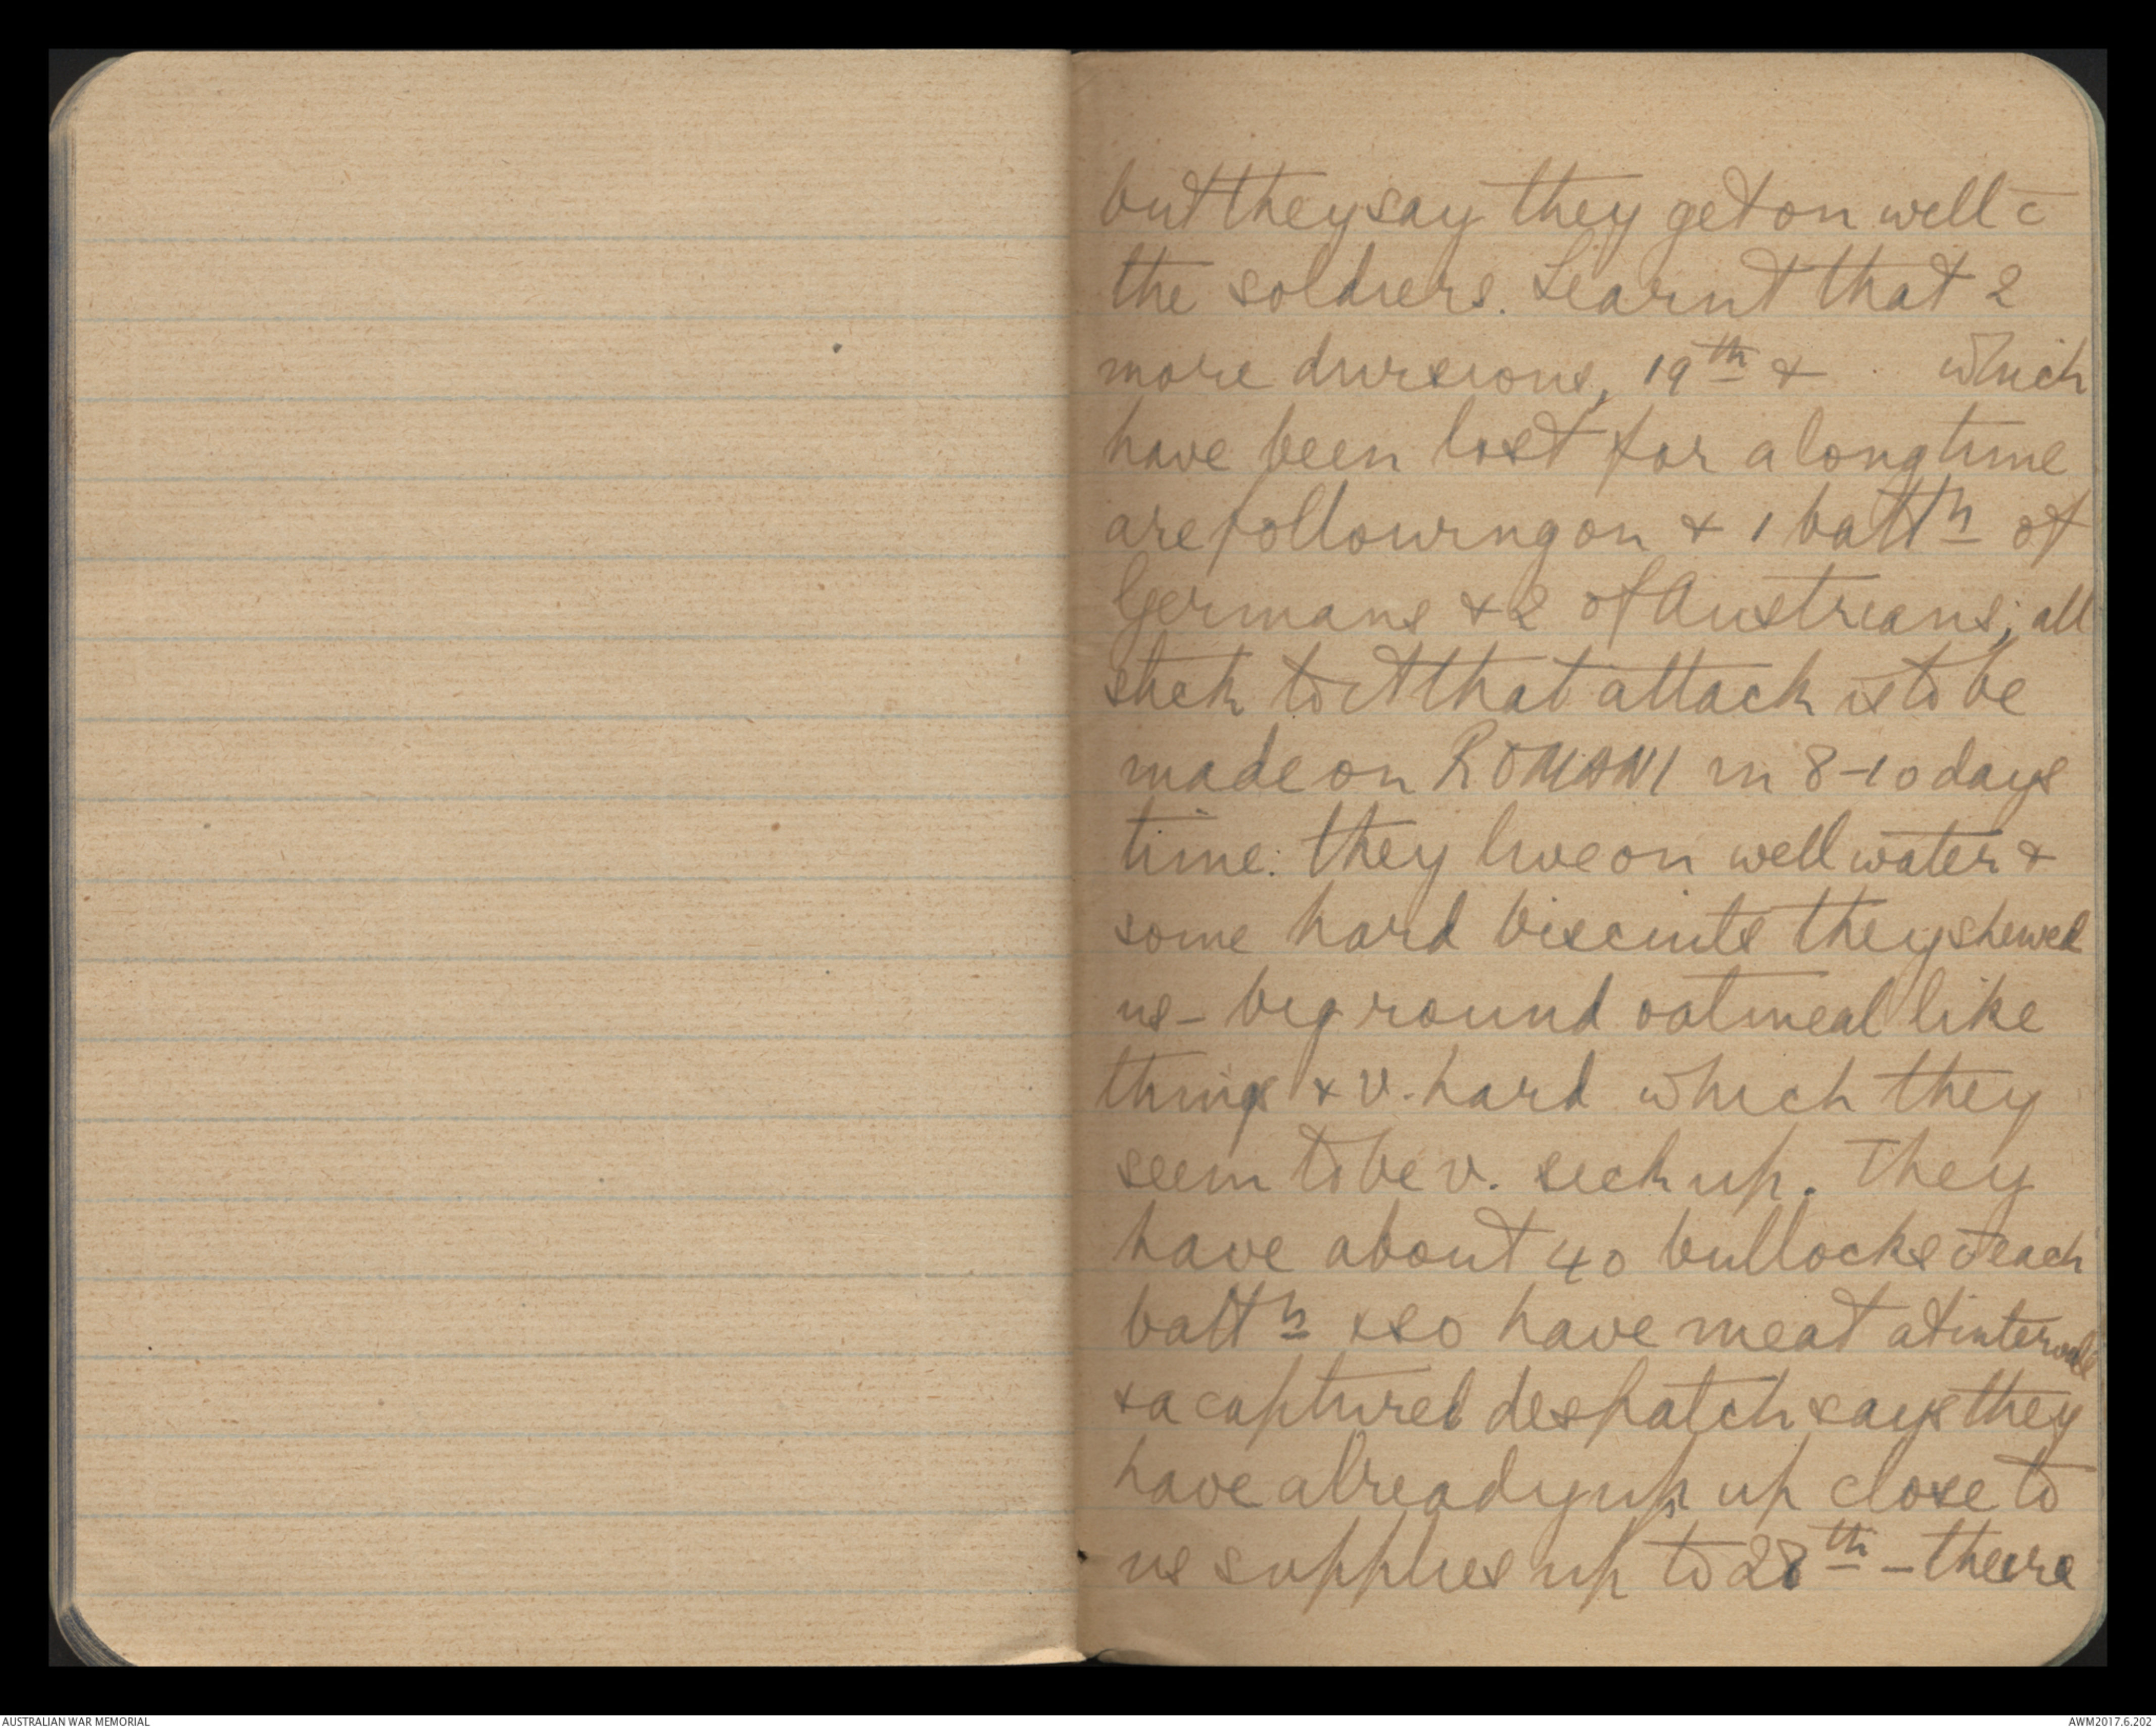 but they say they get on well c̄
the soldiers. Learnt that 2
more divisions, 19th & which
have been lost for a long time
are following on & 1 battn of
Germans & 2 of Austrians; all
stick to it that attack is to be
made on ROMANI in 8-10 days
time. they live on well water &
some hard biscuits they shewed
us - big round oatmeal like
things & v. hard which they
seem to be v. sick up. They
have about 40 bullocks c̄ each
battn & so have meat at intervals
& a captured despatch says they
have already up up close to
us supplies up to 28th - there
AUSTRALIAN WAR MEMORIAL
AWM2017.6.202